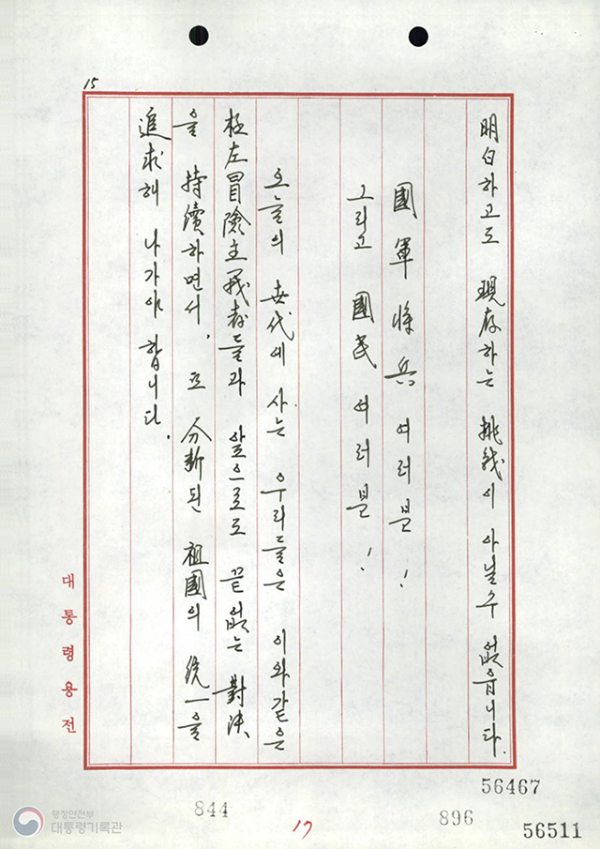 15
明白하고도 現存하는 挑戰이 아닐수 없읍니다.
國軍將兵 여러분!
그리고 國民 여러분!
오늘의 世代에 사는 우리들은 이와같은
極左冒險主義者들과 앞으로도 끝없는 對決
을 持續하면서, 또 分斷된 祖國의 統一을
追求해 나가야 합니다.
대통령용전
56467
844
17
896
56511
행정안전부
대통령기록관